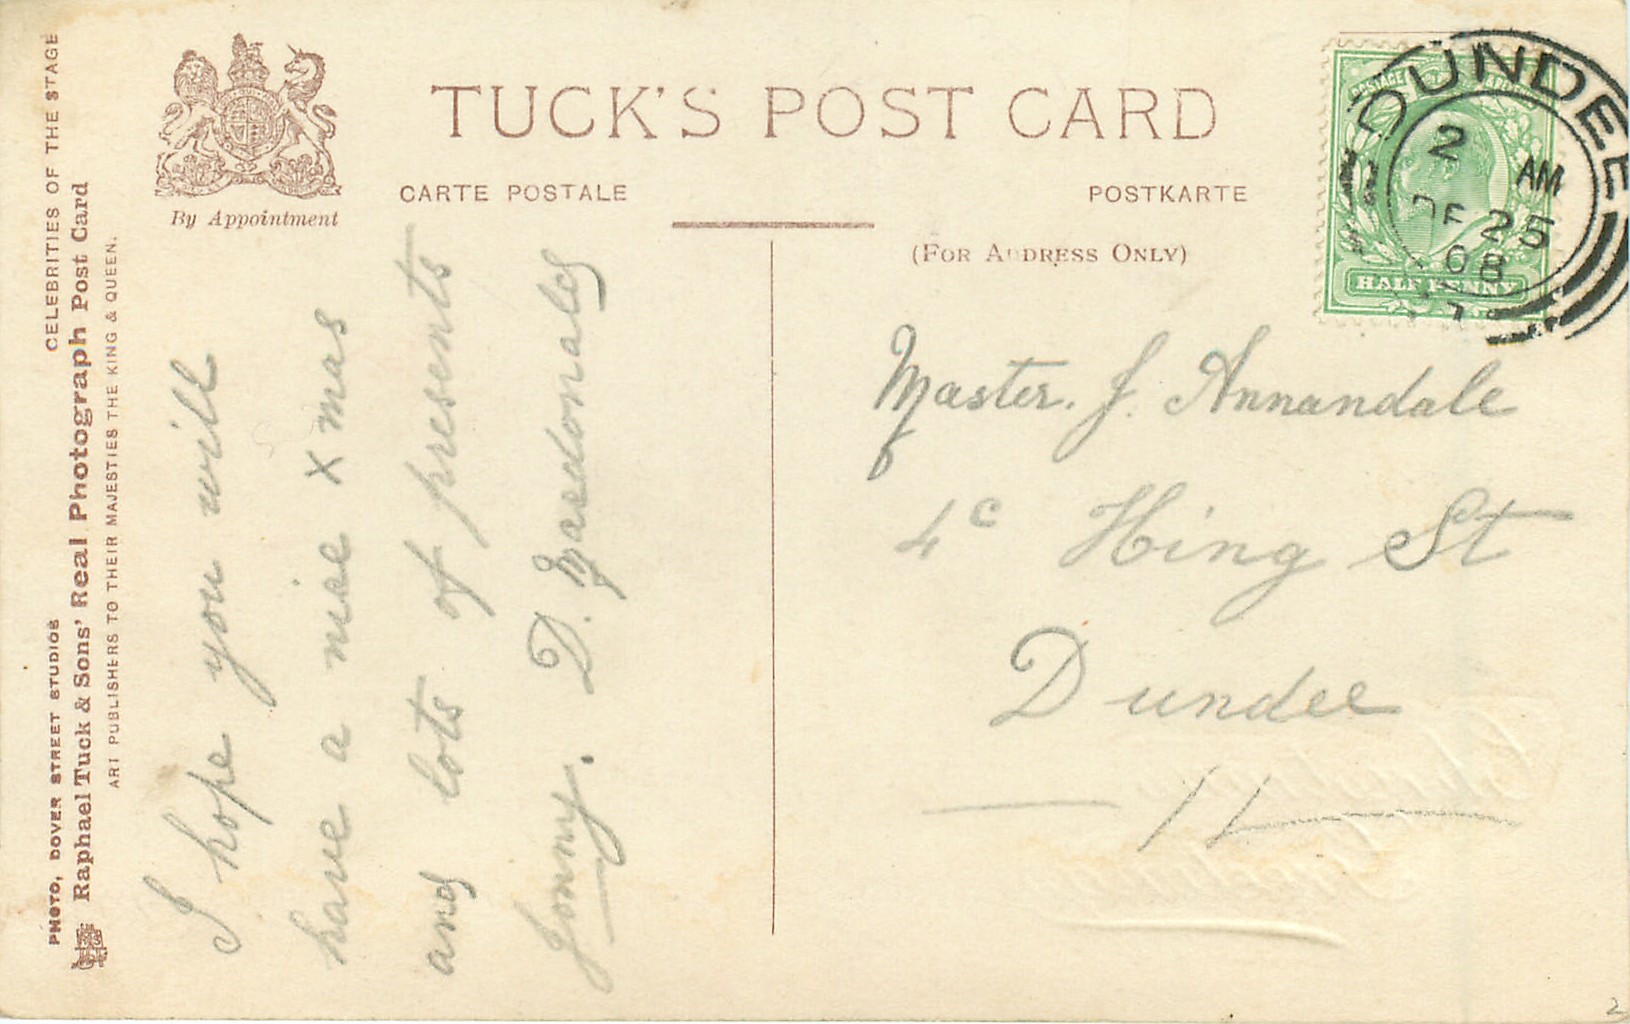 TUCK'S POST CARD
CARTE POSTALE
POSTKARTE
(FOR ADDRESS ONLY)
By Appointment
CELEBRITIES OF THE STAGE
PHOTO, DOVER STREET STUDIOS
Raphael Tuck & Sons' Real Photograph Post Card
ART PUBLISHERS TO THEIR MAJESTIES THE KING & QUEEN.
I hope you will
have a nice Xmas
and lots of presents
Jonny. D. Macdonald
DUNDEE
2 AM
DE 25
08
POSTAGE
HALF PENNY
Master. J. Annandale
4c King St
Dundee
Christmas
Greetings
2